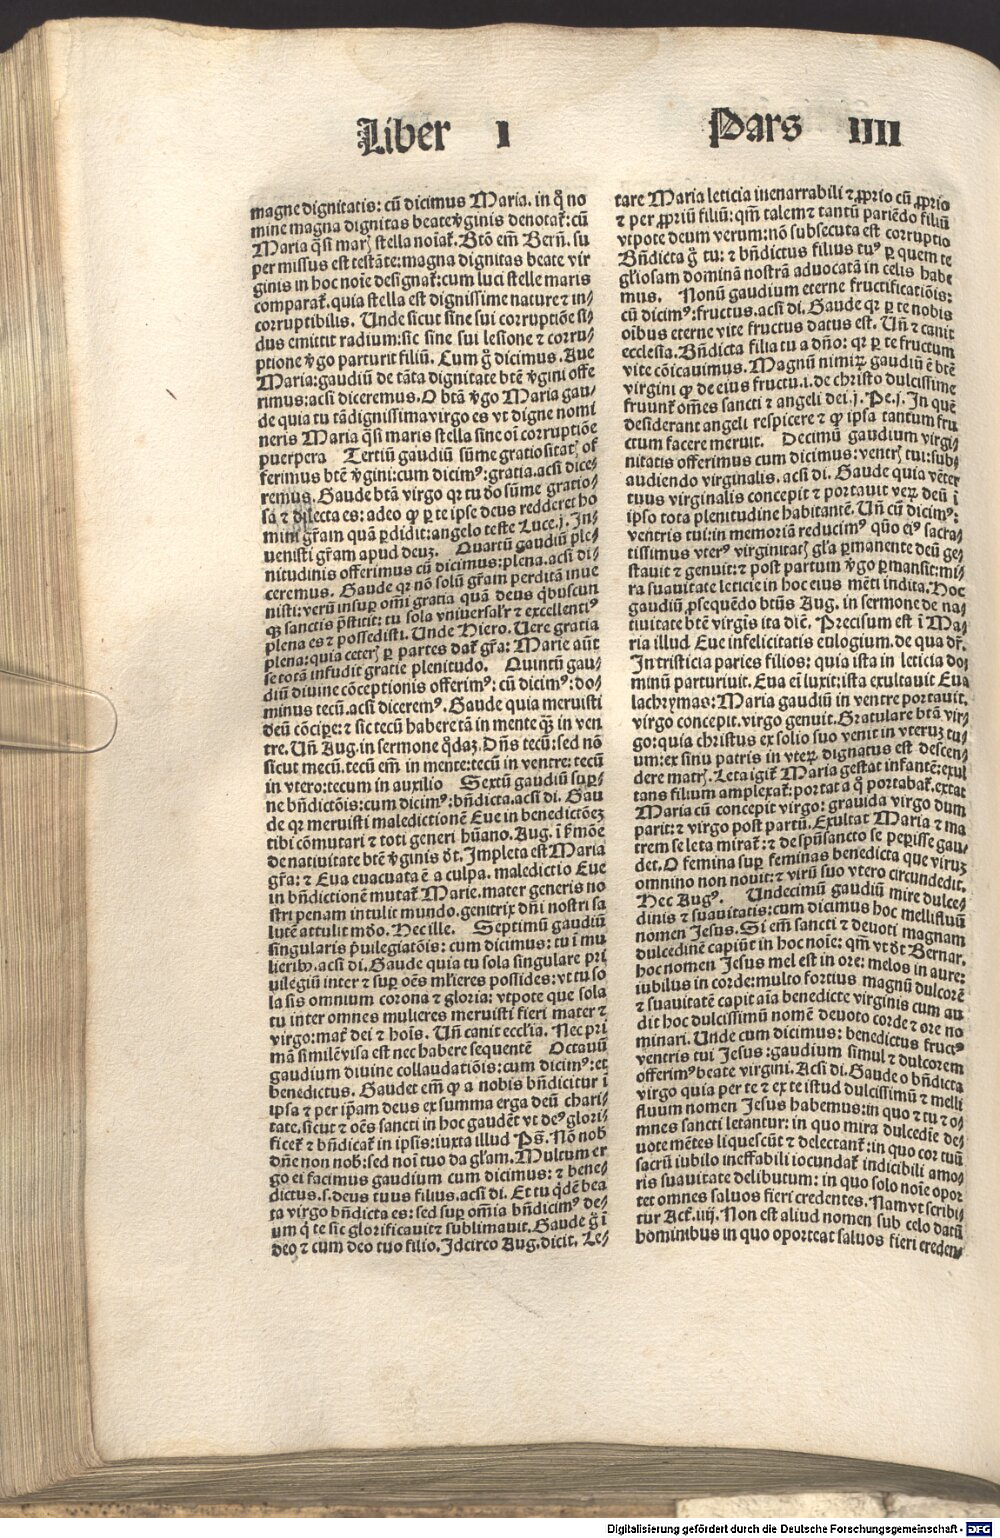 Liber I
Pars IIII
magne dignitatis: cū dicimus Maria. in q̄ no
mine magna dignitas beate v̄ginis denotat̄: cū
Maria q̄si marꝭ stella noīat̄. Btō em̄ Bern̄. su
per missus est testāte: magna dignitas beate vir
ginis in hoc noīe designat̄: cum luci stelle maris
comparat̄. quia stella est dignissime nature ⁊ in⸗
corruptibilis. Unde sicut sine sui corruptiōe si⸗
dus emittit radium: sic̄ sine sui lesione ⁊ corru⸗
ptione v̄go parturit filiū. Cum g̊ dicimus. Aue
Maria: gaudiū de tāta dignitate btē v̄gini offe
rimus: acsi diceremus. O btā v̄go Maria gau⸗
de quia tu tā dignissima virgo es vt digne nomi
neris Maria q̄si maris stella sine oī corruptiōe
puerpera Tertiū gaudiū sūme gratiositatꝭ of
ferimus btē v̄gini: cum dicimꝰ: gratia. acsi dice⸗
remus. Gaude btā virgo qr tu dō sūme gratio⸗
sa ⁊ dilecta es: adeo ꝙ ꝑ te ipse deus redderet ho
mini gr̄am quā ꝑdidit: angelo teste Luce. j. In⸗
uenisti gr̄am apud deuꝫ. Quartū gaudiū ple⸗
nitudinis offerimus cū dicimus: plena. acsi di⸗
ceremus. Gaude qr nō solū gr̄am perditā inue
nisti: verū insuꝑ om̄i gratia quā deus q̄buscun
qꝫ sanctis p̄stitit: tu sola vniuersalr̄ ⁊ excellentiꝰ
plena es ⁊ possedisti. Unde Hiero. Vere gratia
plena: quia ceterꝭ ꝑ partes dat̄ gr̄a: Marie aūt
se totā infudit gratie plenitudo. Quintū gau⸗
diū diuine cōceptionis offerimꝰ: cū dicimꝰ: do⸗
minus tecū. acsi diceremꝰ. Gaude quia meruisti
deū cōcipe: ⁊ sic tecū habere tā in mente qꝫ in ven
tre. Un̄ Aug. in sermone q̄daꝫ. Dn̄s tecū: sed nō
sicut mecū. tecū em̄ in mente: tecū in ventre: tecū
in vtero: tecum in auxilio Sextū gaudiū suꝑ⸗
ne bn̄dictōis: cum dicimꝰ: bn̄dicta. acsi di. Gau
de qr meruisti maledictionē Eue in benedictōeꝫ
tibi cōmutari ⁊ toti generi hūano. Aug. ī s̄mōe
de natiuitate btē v̄ginis dt̄. Impleta est Maria
gr̄a: ⁊ Eua euacuata ē a culpa. maledictio Eue
in bn̄dictionē mutat̄ Marie. mater generis no
stri penam intulit mundo. genitrix dn̄i nostri sa
lutē attulit mūdo. Hec ille. Septimū gaudiū
singularis p̄uilegiatōis: cum dicimus: tu ī mu
lieribꝫ. acsi di. Gaude quia tu sola singulare pri
uilegiū inter ⁊ suꝑ oēs ml̄ieres possides: vt tu so
la sis omnium corona ⁊ gloria: vtpote que sola
tu inter omnes mulieres meruisti fieri mater ⁊
virgo: mat̄ dei ⁊ hoīs. Un̄ canit eccl̄ia. Nec pri
mā similē visa est nec habere sequentē Octauū
gaudium diuine collaudatiōis: cum dicimꝰ: et
benedictus. Gaudet em̄ ꝙ a nobis bn̄dicitur ī
ipsa ⁊ per ip̄am deus ex summa erga deū chari⸗
tate. sicut ⁊ oēs sancti in hoc gaudēt vt deꝰ glori⸗
ficet̄ ⁊ bn̄dicat̄ in ipsis: iuxta illud Ps̄. Nō nob
dn̄e non nob: sed noī tuo da gl̄am. Multum er
go ei facimus gaudium cum dicimus: ⁊ bene⸗
dictus. s. deus tuus filius. acsi di. Et tu q̄dē bea
ta virgo bn̄dicta es: sed suꝑ om̄ia bn̄dicimꝰ de⸗
um q̄ te sic glorificauit ⁊ sublimauit. Gaude g̊ ī
deo ⁊ cum deo tuo filio. Idcirco Aug. dicit. Le⸗
tare Maria leticia inenarrabili ⁊ ꝓprio cū ꝓprio
⁊ per ꝓpriū filiū: qm̄ talem ⁊ tantū pariēdo filiū
vtpote deum verum: nō subsecuta est corruptio
Bn̄dicta g̊ tu: ⁊ bn̄dictus filius tuꝰ ꝑ quem te
gl̄iosam dominā nostrā aduocatā in celis habe
mus. Nonū gaudium eterne fructificatiōis:
cū dicimꝰ: fructus. acsi di. Gaude qr ꝑ te nobis
oībus eterne vite fructus datus est. Un̄ ⁊ canit
ecclesia. Bn̄dicta filia tu a dn̄o: qr ꝑ te fructum
vite cōīcauimus. Magnū nimiꝝ gaudiū ē btē
virgini ꝙ de eius fructu. i. de christo dulcissime
fruunt̄ om̄es sancti ⁊ angeli dei. j. Pe. j. In quē
desiderant angeli respicere ⁊ ꝙ ipsa tantum fru
ctum facere meruit. Decimū gaudium virgi⸗
nitatis offerimus cum dicimus: ventrꝭ tui: sub⸗
audiendo virginalis. acsi di. Gaude quia vēter
tuus virginalis concepit ⁊ portauit veꝝ deū ī
ipso tota plenitudine habitantē. Un̄ cū dicimꝰ:
ventris tui: in memoriā reducimꝰ quō eiꝰ sacra⸗
tissimus vterꝰ virginitatꝭ gl̄a ꝑmanente deū ge⸗
stauit ⁊ genuit: ⁊ post partum v̄go ꝑmansit: mi⸗
ra suauitate leticie in hoc eius mēti indita. Hoc
gaudiū ꝓsequēdo btūs Aug. in sermone de na⸗
tiuitate btē virgīs ita diē. Precisum est ī Ma⸗
ria illud Eue infelicitatis eulogium. de qua dr̄.
In tristicia paries filios: quia ista in leticia do⸗
minū parturiuit. Eua ei luxit: ista exultauit Eua
lachrymas: Maria gaudiū in ventre portauit.
virgo concepit. virgo genuit. Gratulare btā vir⸗
go: quia christus ex solio suo venit in vteruꝫ tu⸗
um: ex sinu patris in vteꝝ dignatus est descen⸗
dere matrꝭ. Leta igit̄ Maria gestat infantē: exul
tans filium amplexat̄: portat a q̄ portabat̄. extat
Maria cū concepit virgo: grauida virgo dum
parit: ⁊ virgo post partū. Exultat Maria ⁊ ma
trem se leta mirat̄: ⁊ de spū sancto se peꝑisse gau⸗
det. O femina suꝑ feminas benedicta que viruꝫ
omnino non nouit: ⁊ virū suo vtero circundedit.
Hec Augꝰ. Undecimū gaudiū mire dulce⸗
dinis ⁊ suauitatis: cum dicimus hoc mellifluū
nomen Jesus. Si em̄ sancti ⁊ deuoti magnam
dulcedinē capiūt in hoc noīe: qm̄ vt dt̄ Bernar.
hoc nomen Jesus mel est in ore: melos in aure:
iubilus in corde: multo fortius magnū dulcorē
⁊ suauitatē capit aīa benedicte virginis cum au
dit hoc dulcissimū nomē deuoto corde ⁊ ore no
minari. Unde cum dicimus: benedictus fructꝰ
ventris tui Jesus: gaudium simul ⁊ dulcorem
offerimꝰ beate virgini. Acsi di. Gaude o bn̄dicta
virgo quia per te ⁊ ex te istud dulcissimū ⁊ melli
fluum nomen Jesus habemus: in quo ⁊ tu ⁊ o⸗
mnes sancti letantur: in quo mira dulcedīe de⸗
uote mētes liquescūt ⁊ delectant̄: in quo cor tuū
sacrū iubilo ineffabili iocundat̄ indicibili amo⸗
ris suauitate delibutum: in quo solo noīe opor
tet omnes saluos fieri credentes. Nam vt scribi⸗
tur Act̄. iiij. Non est aliud nomen sub celo datū
hominibus in quo oporteat saluos fieri creden⸗
Digitalisierung gefördert durch die Deutsche Forschungsgemeinschaft - DFG